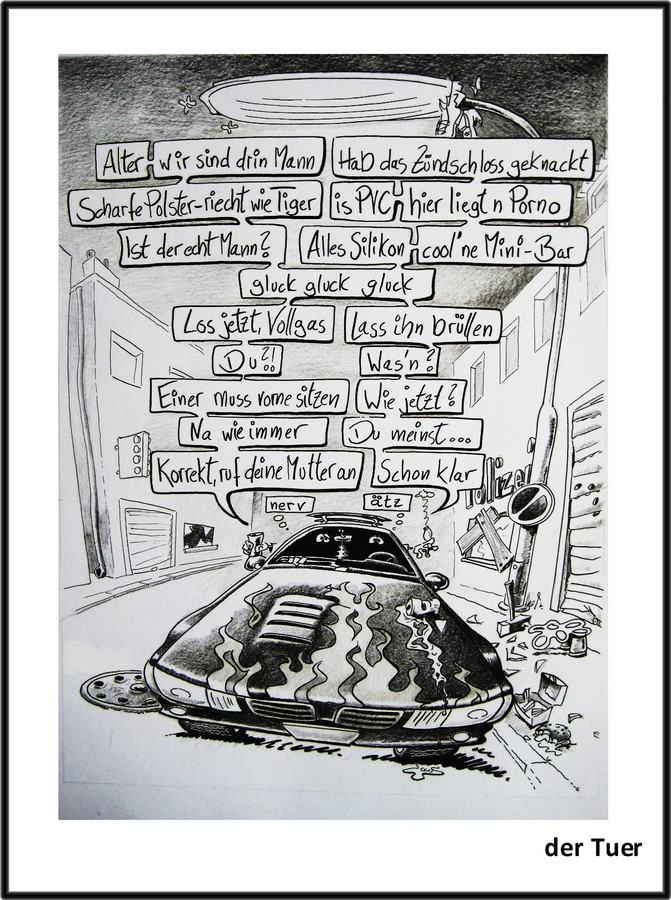 Alter wir sind drin Mann
Hab das Zündschloss geknackt
Scharfe Polster-riecht wie Tiger
is PVC hier liegt n Porno
Ist der echt Mann?
Alles Silikon cool'ne Mini-Bar
gluck gluck gluck
Los jetzt, Vollgas
Lass ihn brüllen
Du?!
Was'n?
Einer muss vorne sitzen
Wie jetzt?
Na wie immer
Du meinst...
Korrekt, ruf deine Mutter an
Schon klar
Polizei
nerv
ätz
der Tuer